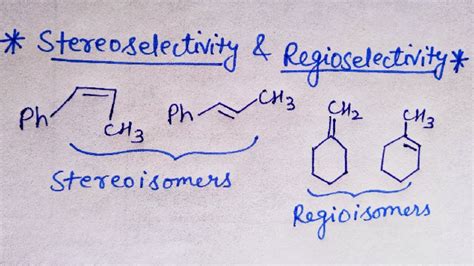 * Stereoselectivity & Regioselectivity *
Ph CH3 Ph CH3 CH2 CH3
Stereoisomers
Regioisomers